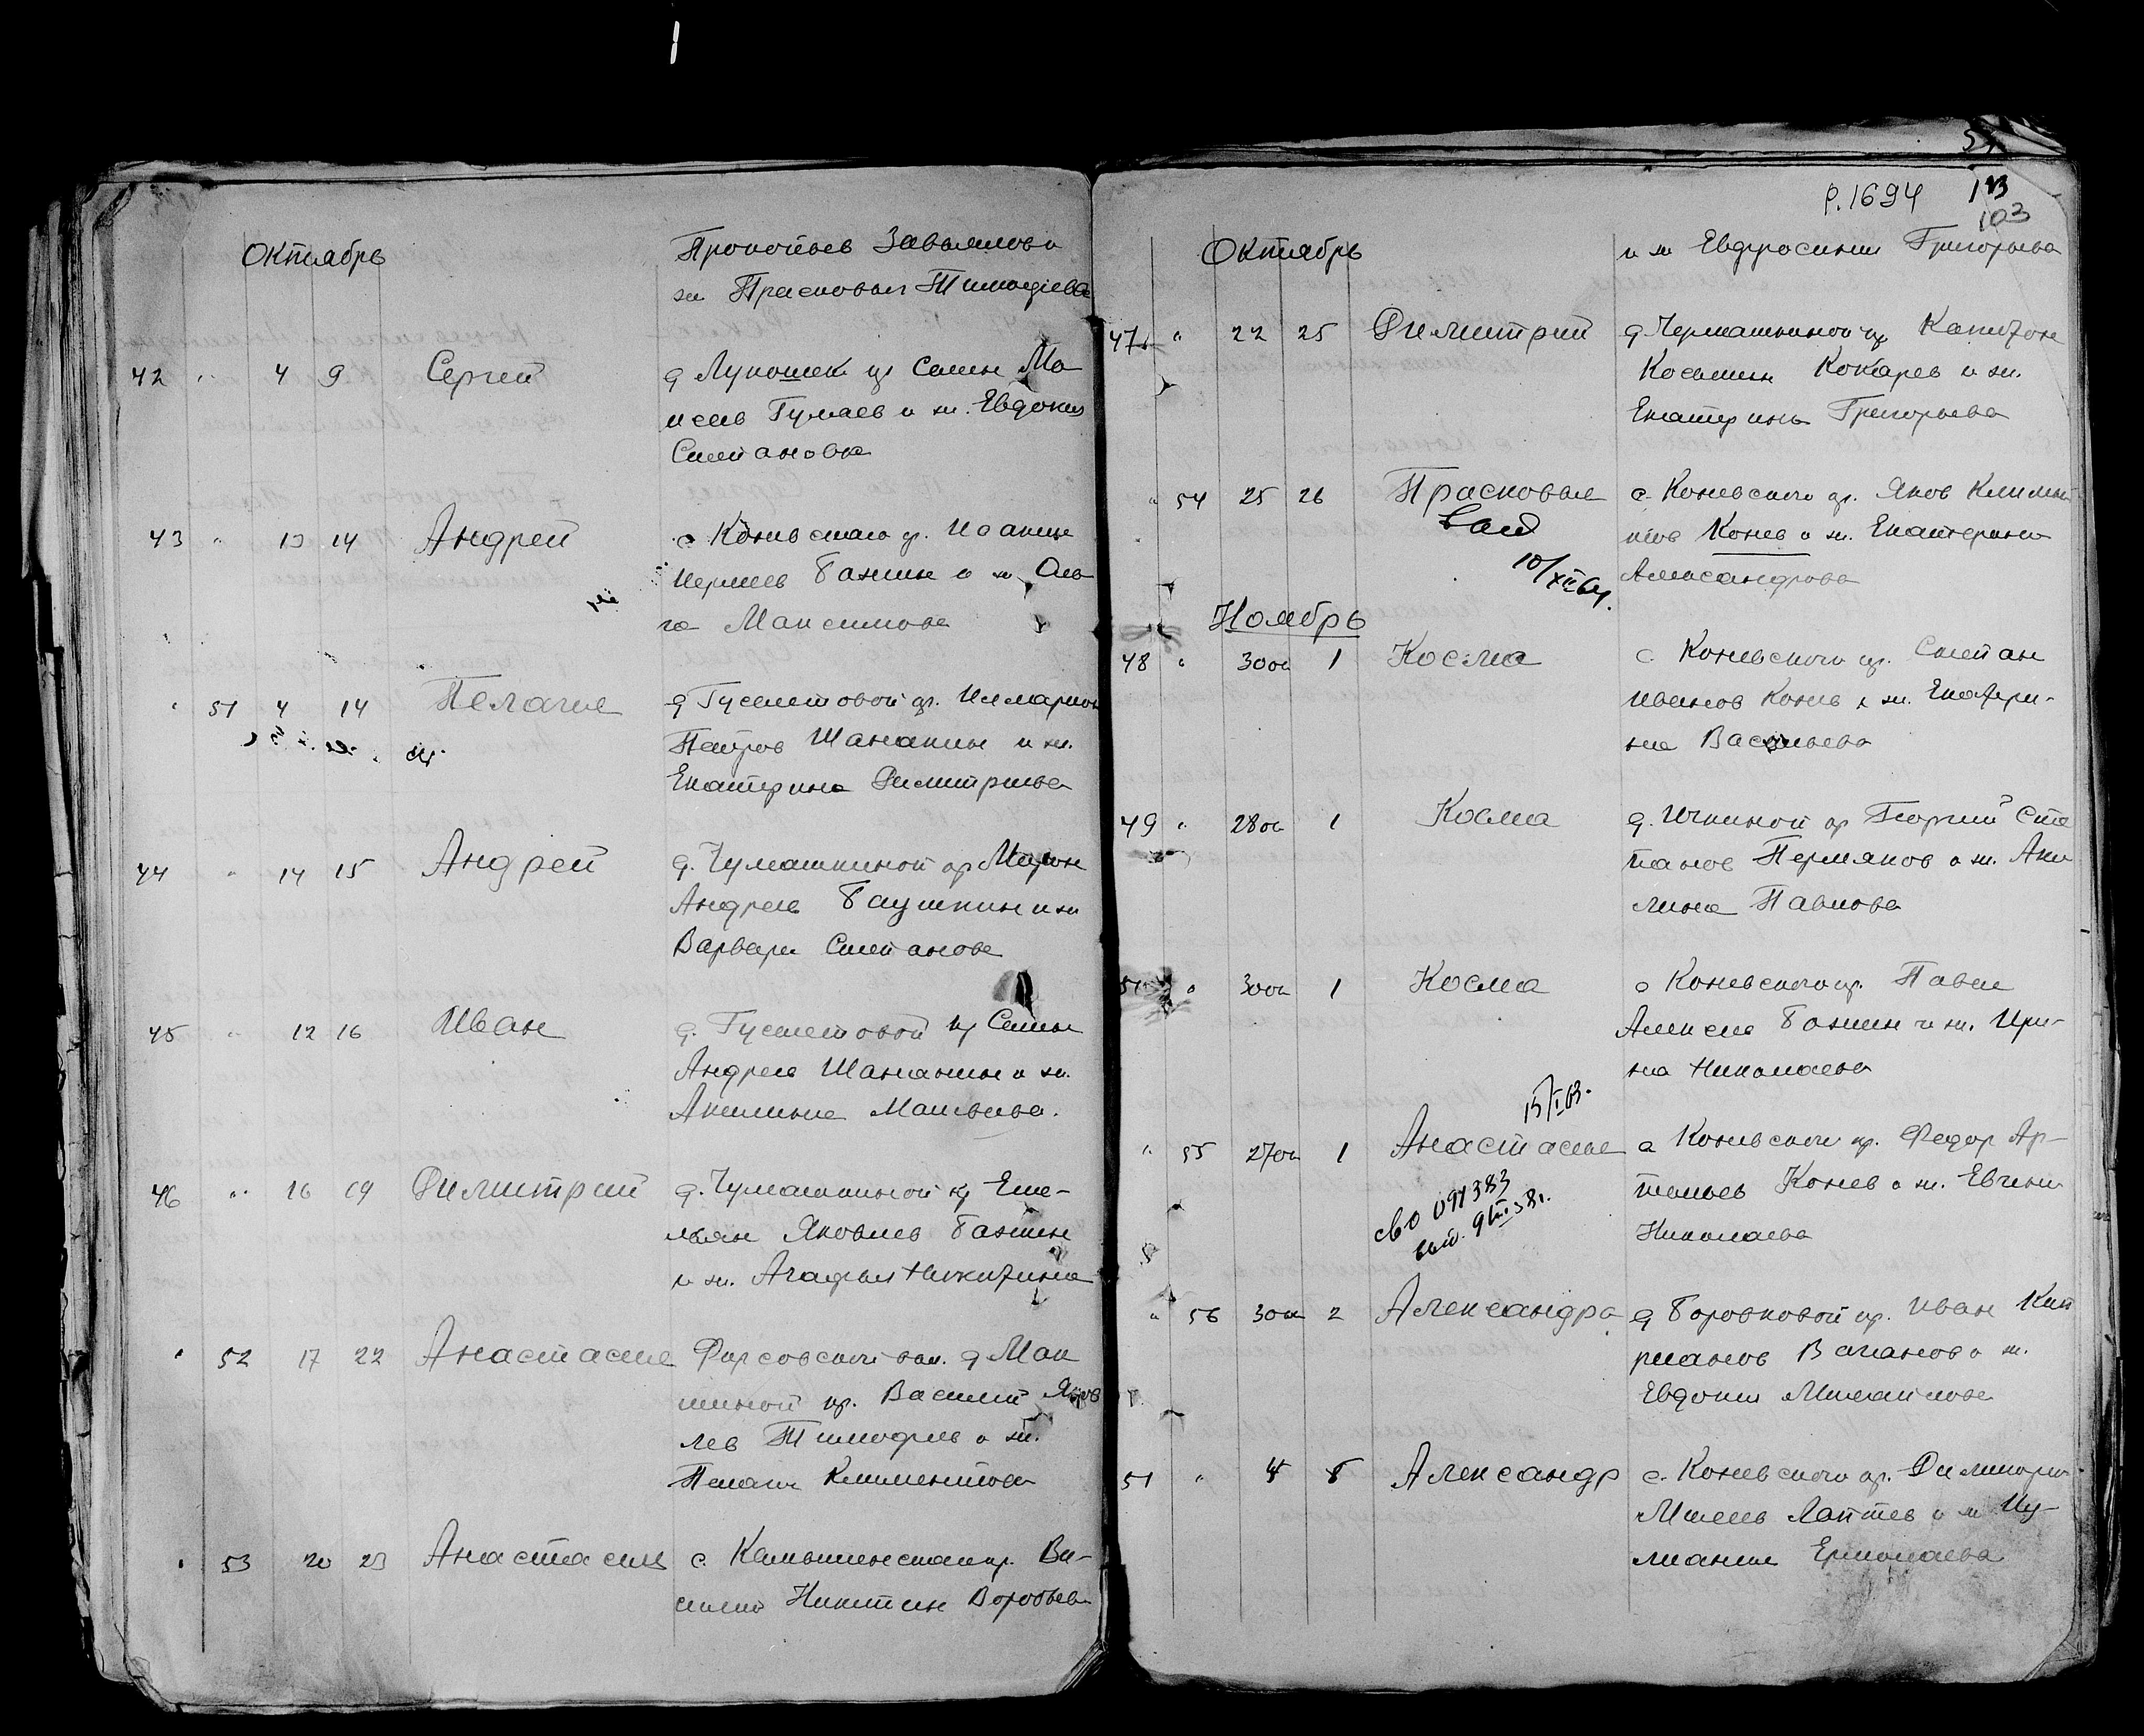 Октябрь
Прокопьев Завьялов и
ж Прасковья Тимофеева
42 " 4 9 Сергей д Лукошек гр Семен Мо
исеев Гулаев и ж. Евдокия
Степанова
43 " 13 14 Андрей с Коневского гр. Иоанн
Бажин и ж Оль
га Максимова
" 51 4 14 Пелагия д Гусметовой гр. Илларион
Петров Шанаурин и ж.
Екатерина Димитриева
44 " 14 15 Андрей д. Чумашкиной гр
Андреев Баушкин и ж
Варвара Степанова
45 " 12 16 Иван д. гр Семен
Андреев и ж.
Акилина Матвеева.
46 " 16 19 Димитрий д. Чумашкиной гр Еме-
льян Яковлев Бажин
и ж. Агафья Никитина
" 52 17 22 Анастасия Фирсовской вол. д Мак
шиной гр. Василий Яков
лев Тимофеев и ж.
Пелагия Климентова
" 53 20 23 Анастасия с. гр. Ва-
силий Никитин Воробьев
Р.1694
103
Октябрь
и ж Евфросиния Григорьева
47 " 22 25 Димитрий д. гр Капитон
Космин Кокарев и ж.
Екатерина Григорьева
" 54 25 26 Прасковья с. Коневского гр. Яков Климен
тов Конев и ж. Екатерина
выд
10/XII 64.
Александрова
Ноябрь
48 " 30 ок 1 Косма с. Коневского гр. Степан
Иванов Конев и ж. Екатери-
на Васильева
49 " 28 ок 1 Косма д. Ичкиной гр Георгий Сте
панов Пермяков и ж. Аки
лина Павлова
" 30 ок 1 Косма с Коневского гр. Павел
Алексеев Бажин и ж. Ири-
на Николаева
15/I 63.
" 55 27 ок 1 Анастасия с Коневского гр. Федор Ар-
темьев Конев и ж. Евгения
св-о 091383
выд. 9/III 58 г.
Николаева
" 56 30 ок 2 Александра д Боровковой гр. Иван Кип
рианов Ваганов и ж.
Евдокия Михайлова
51 " 4 8 Александр с. Коневского гр. Димитрий
Лаптев и ж Иу-
лиания Ермолаева